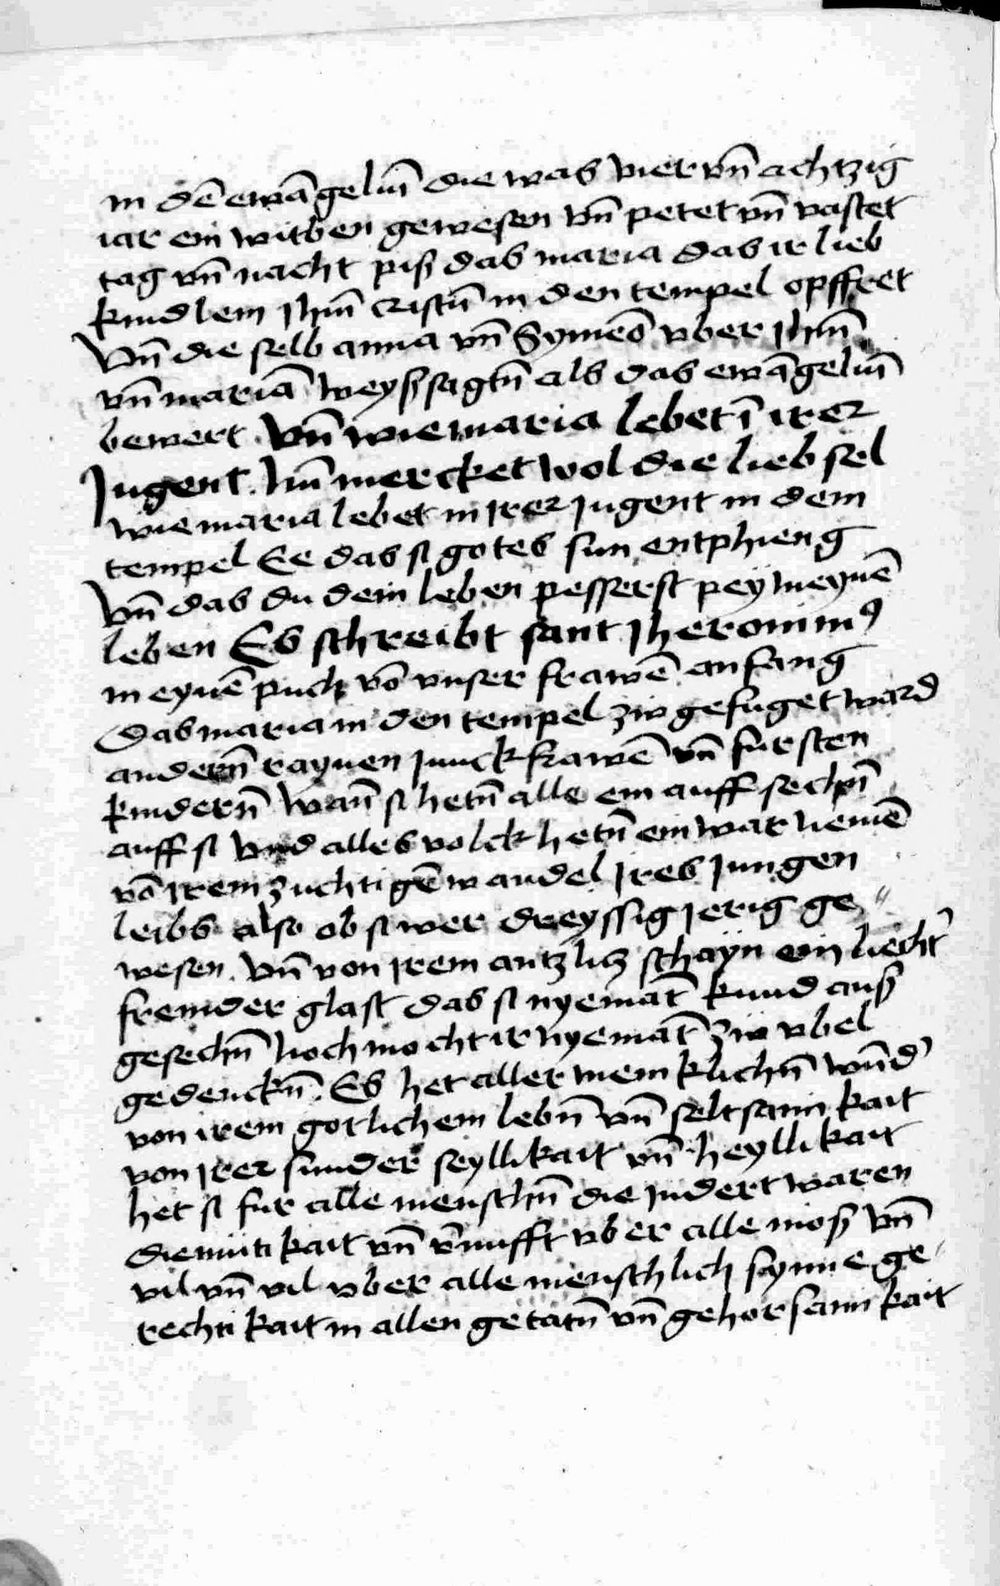 in dē ewāgeliū die was vier vn̄ achtzig
iar ein witben gewesen vn̄ petet vn̄ vastet
tag vn̄ nacht piß das maria das ir lieb
kindlein Jhm̄ cristū in den tempel opffret
Vn̄ die selb anna vn̄ Symeō vber Jhm̄
vn̄ mariā weyßsagtn̄ als das ewāgeliū
bewert. Vn̄ wie maria lebet ī irer
Jugent. Nu̅ mercket wol die lieb sel
wie maria lebet in irer Jugent in dem
tempel Ee das si gotes sun entphieng
Vn̄ das du dein leben pesserst pey meynē
leben Es schreibt sant Jheronimꝰ
in eynē puch vō vnser frawē anfang
Das maria in den tempel zw gefuget ward
andern̄ raynen Junckfrawē vn̄ fursten
kindern̄ Wan̄ si hetn̄ alle ein auff sechn̄
auff si Vnd alles volck hetn̄ ein war nemē
vō irem zuchtigē wandel Jres Jungen
leibs also ob si wer dreyssig Jerig ge⸗
wesen. Vn̄ von irem antzlitz schayn ein liecht᾽
fremder glast das si nyemāt kund anß
gesechn̄ Noch mocht ir nyemāt zw vbel
gedenckn̄. Es het aller menklichn̄ wūd᾽
von irem gotlichem lebn̄ vn̄ seltsamkait
von irer sunder seyllikait vn̄ heyllikait
het si fur alle menschn̄ die Jndert waren
diemutikait vn̄ v̄nufft vber alle moß Vn̄
vil vn̄ vil vber alle menschlich synne ge⸗
rechtikait in allen getatn̄ vn̄ gehorsamkait